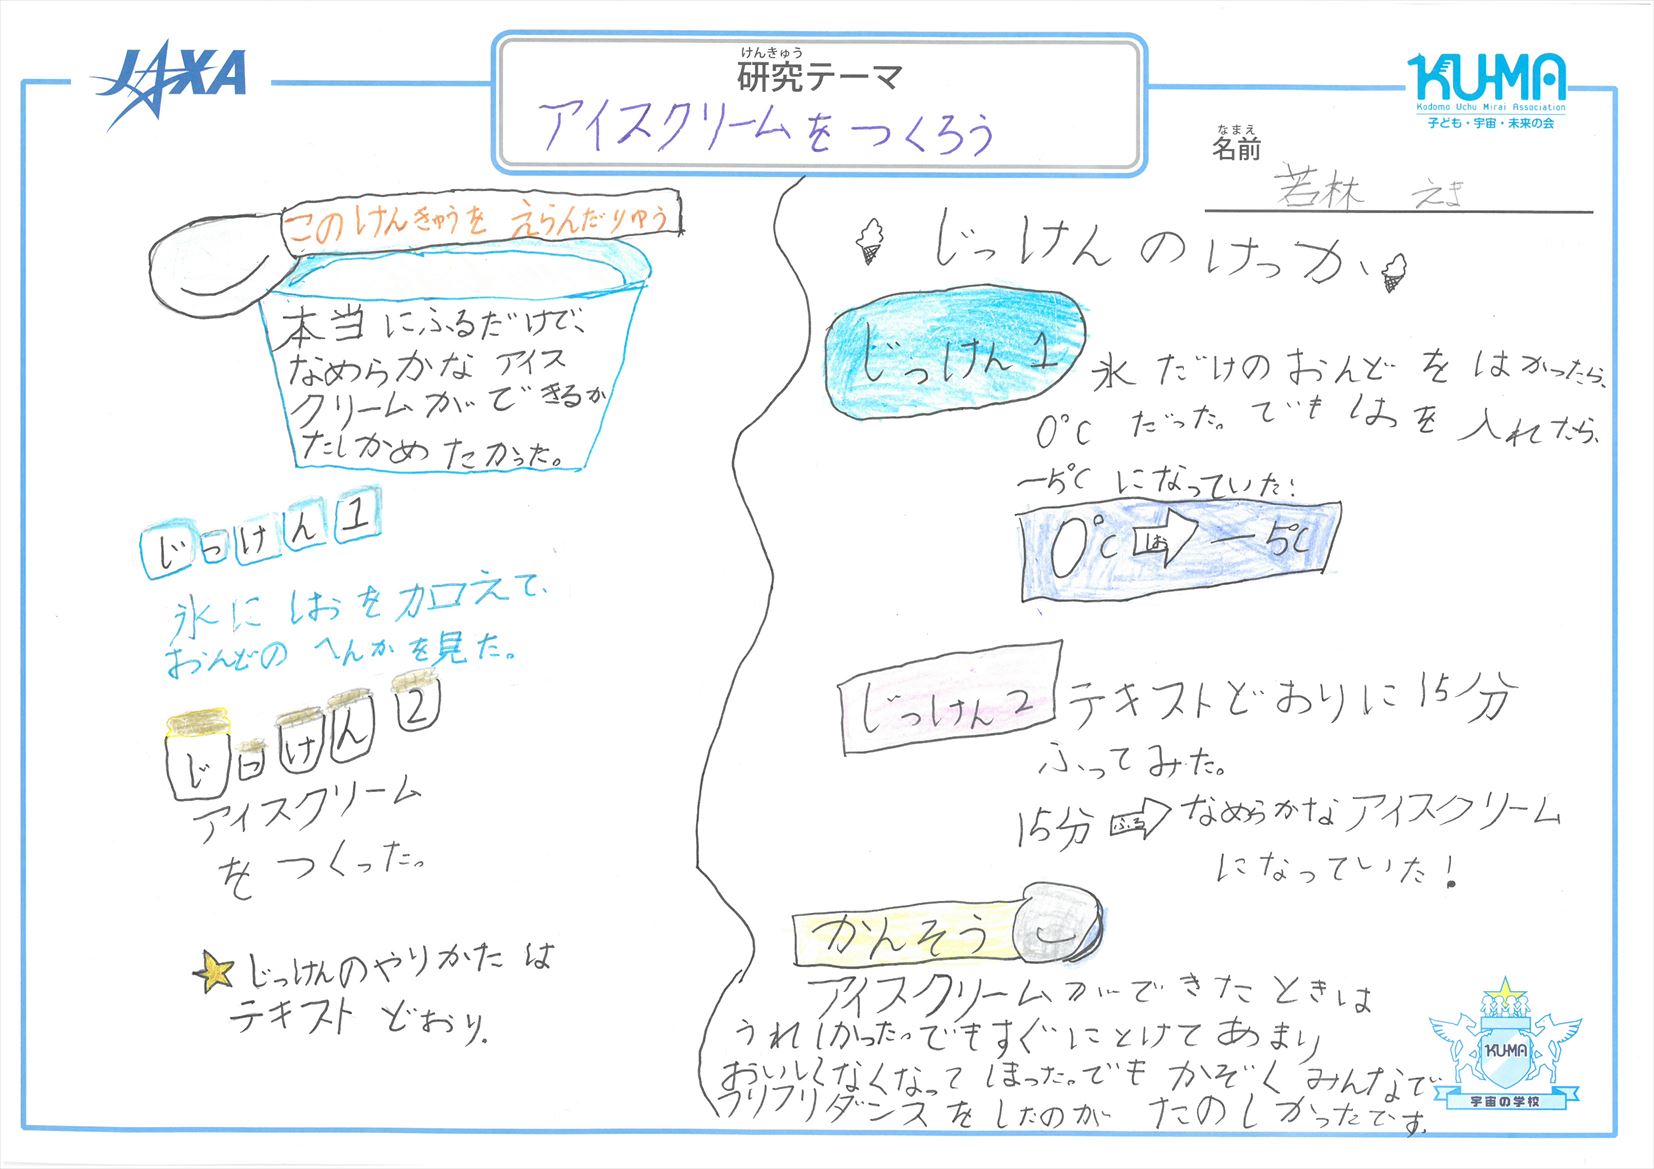 JAXA
けんきゅう
研究テーマ
アイスクリームをつくろう
KU-MA
Kodomo Uchu Mirai Association
子ども・宇宙・未来の会
なまえ
名前
若林 えま
このけんきゅうをえらんだりゆう
本当にふるだけで、
なめらかなアイス
クリームができるか
たしかめたかった。
じっけん1
氷にしおを加えて、
おんどのへんかを見た。
じっけん2
アイスクリーム
をつくった。
じっけんのやりかたは
テキストどおり。
じっけんのけっか
じっけん1
氷だけのおんどをはかったら、
0℃だった。でもしおを入れたら、
-5℃になっていた!
0℃ しお -5℃
じっけん2
テキストどおりに15分
ふってみた。
15分 ふる なめらかなアイスクリーム
になっていた!
かんそう
アイスクリームができたときは
うれしかった。でもすぐにとけてあまり
おいしくなくなってしまった。でもかぞくみんなで
フリフリダンスをしたのがたのしかったです。
KU-MA
宇宙の学校